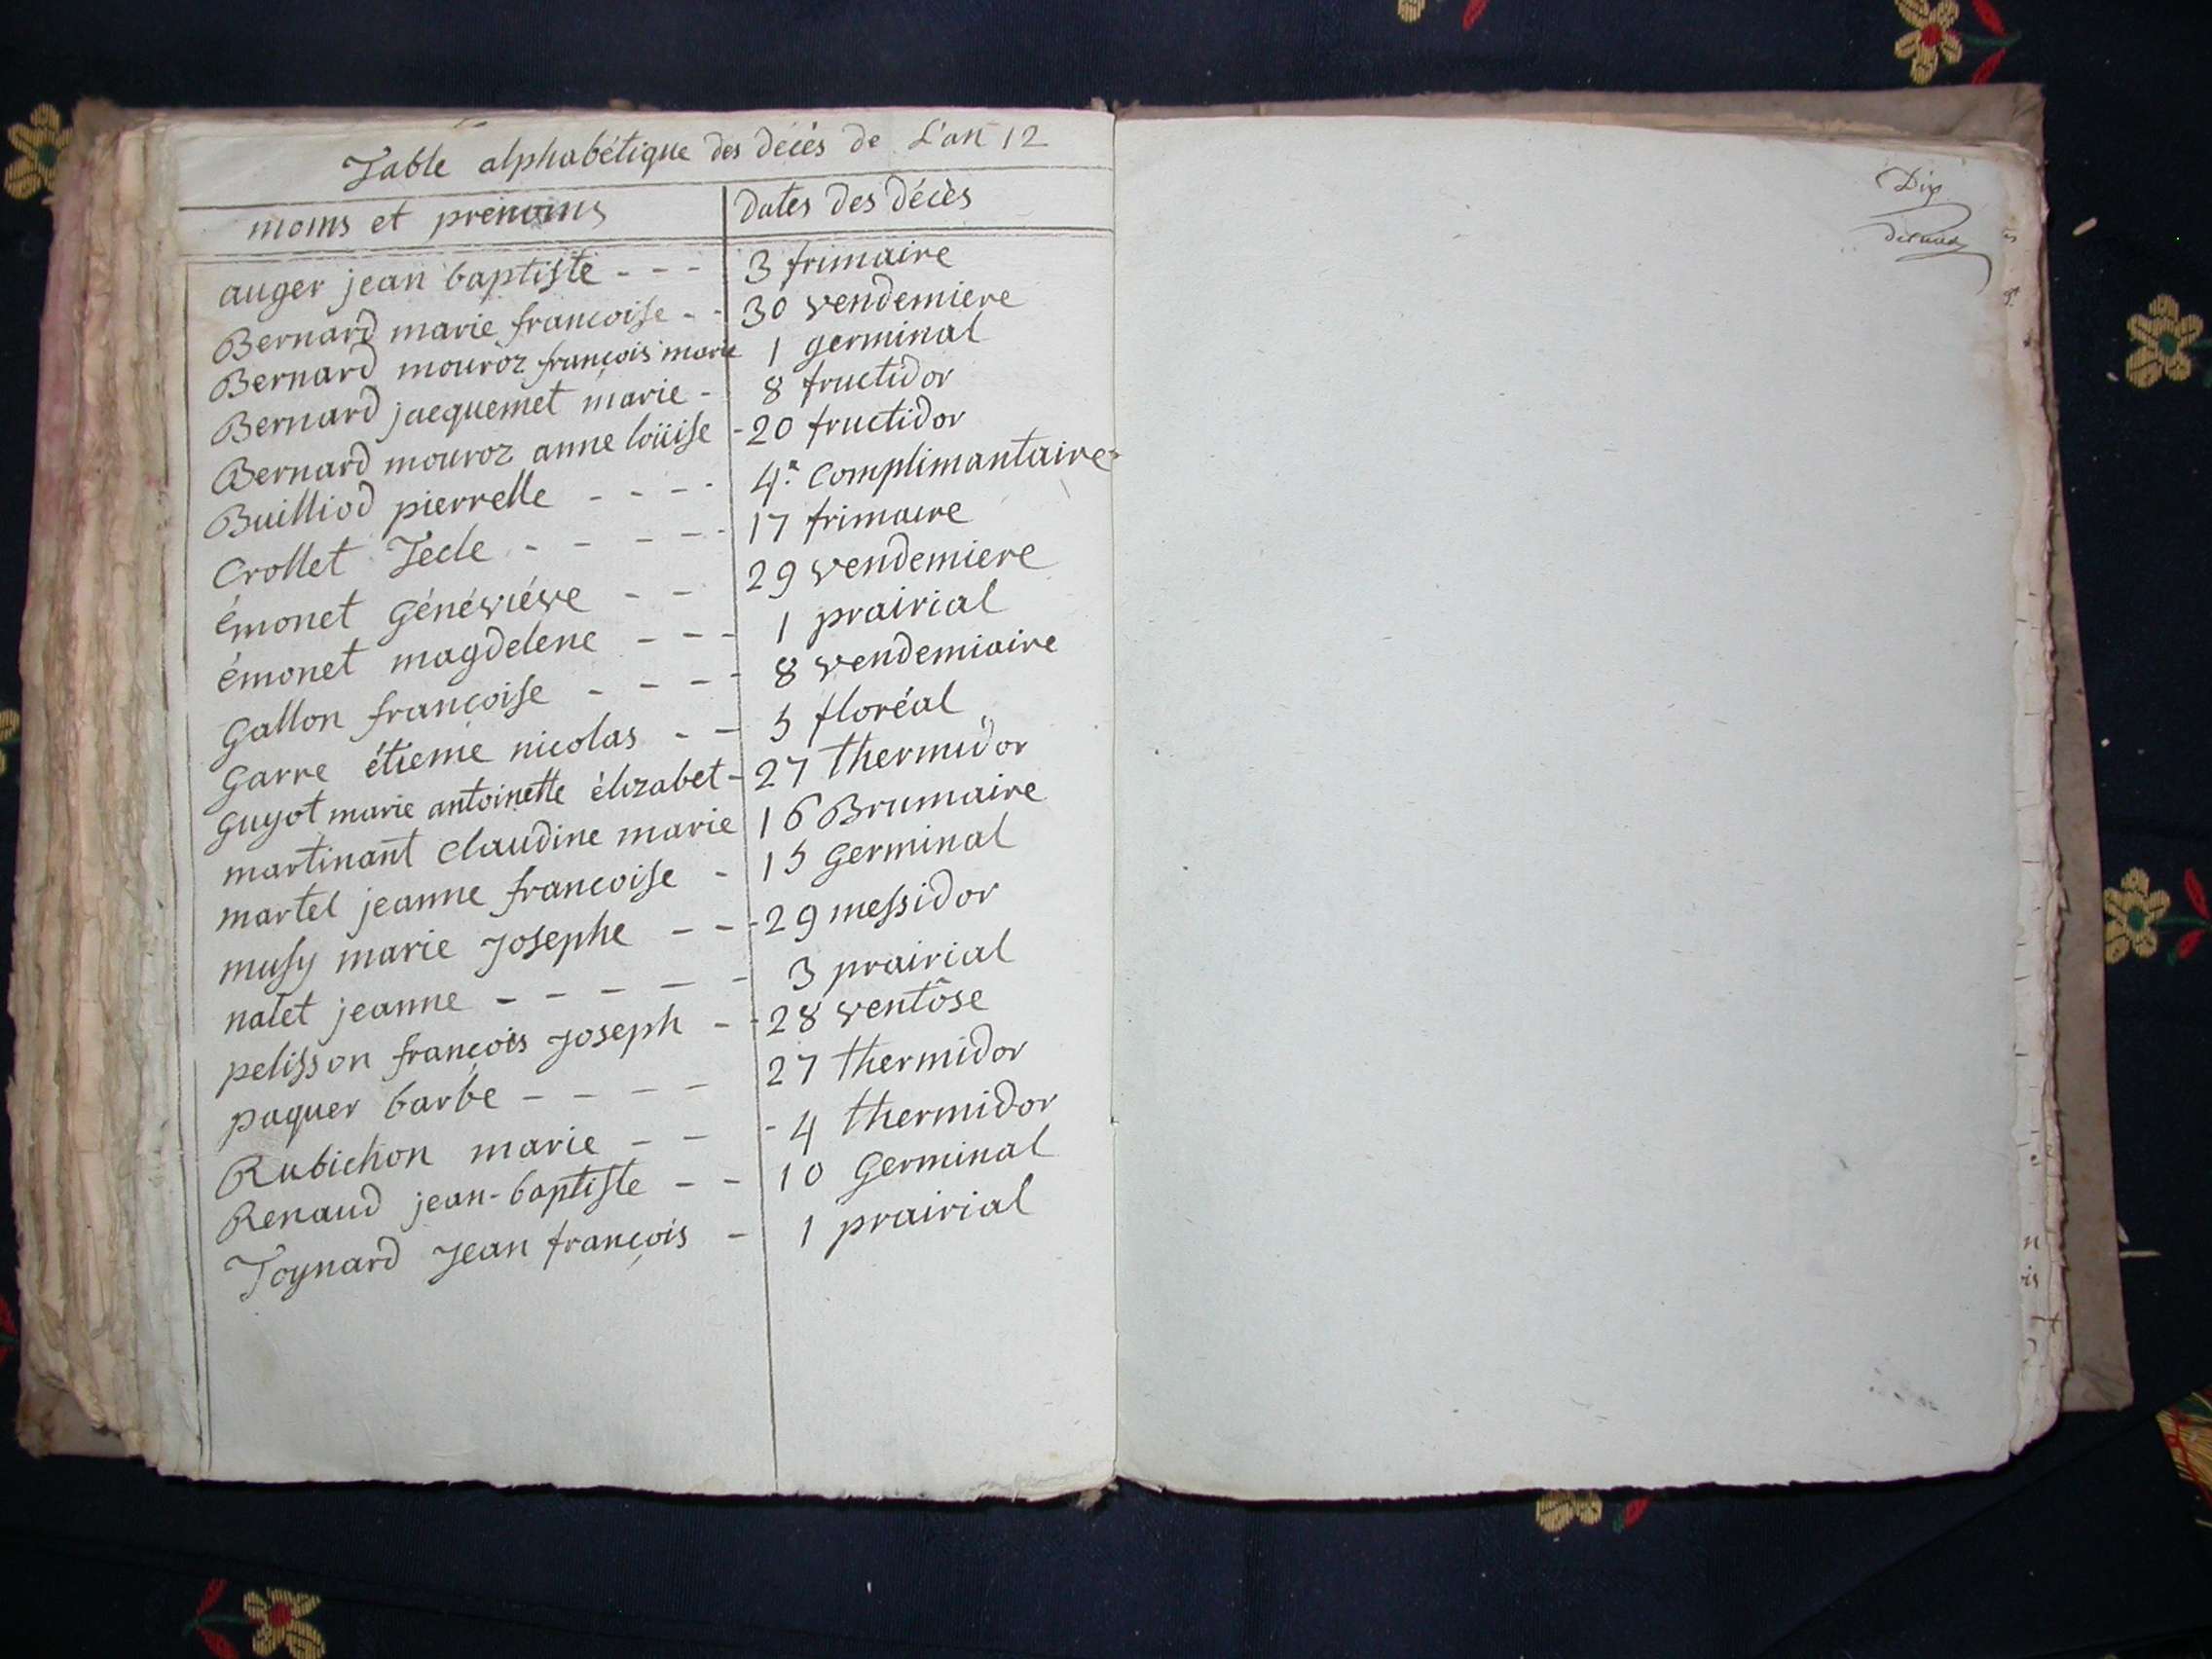 Table alphabétique des décès de L'an 12
moms et prénoms
dates des décès
auger jean baptiste - - - 3 frimaire
Bernard marie francoise - - 30 vendemiere
Bernard mouroz françois marie 1 germinal
Bernard jacquemet marie - 8 fructidor
Bernard mouroz anne loüise - 20 fructidor
Builliod pierrelle - - - - 4.e Complimantaire
Crollet Tecle - - - - - 17 frimaire
émonet Généviéve - - 29 vendemiere
émonet magdelene - - - 1 prairial
Gallon francoise - - - - 8 vendemiaire
Garre étieme nicolas - - 5 floréal
Guyot marie antoinette élizabet - 27 thermidor
martinant Claudine marie 16 Brumaire
martel jeanne francoise - 15 Germinal
musy marie Josephe - - - 29 messidor
nalet jeanne - - - - - 3 prairial
pelisson françois Joseph - - 28 ventôse
paquer barbe - - - - 27 thermidor
Rubichon marie - - - 4 thermidor
Renaud jean-baptiste - - 10 Germinal
Toynard Jean françois - 1 prairial
Dix